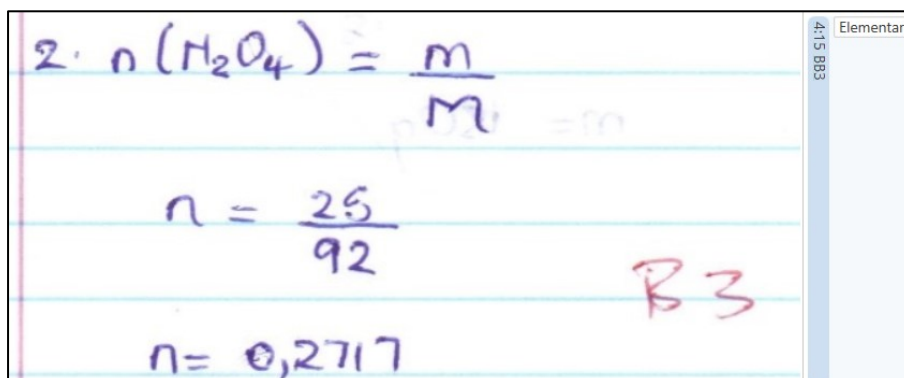 2. n(N₂O₄) = m/M
n = 25/92
B3
n = 0,2717
4:15 BB3
Elementar